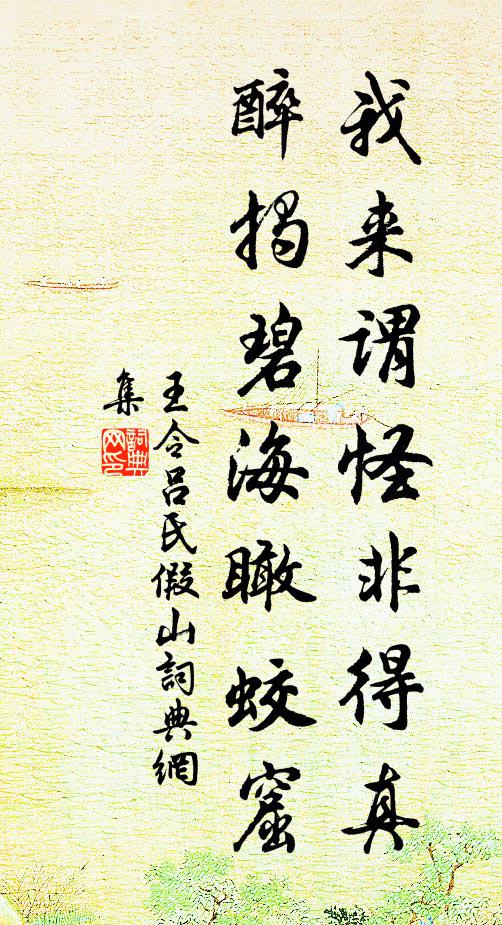 我来谓怪非得真
醉揭碧海瞰蛟窟
王令吕氏假山詞典網
集
詞典